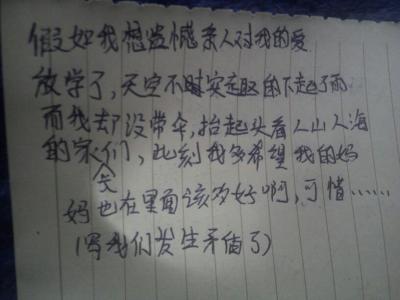 假如我想遗憾亲人对我的爱
放学了,天空不时突起的下起了雨
而我却没带伞,抬起头看人山人海
的家长们,此刻我多希望我的妈
妈也在里面该多好啊,可惜……
(写我们发生矛盾了)